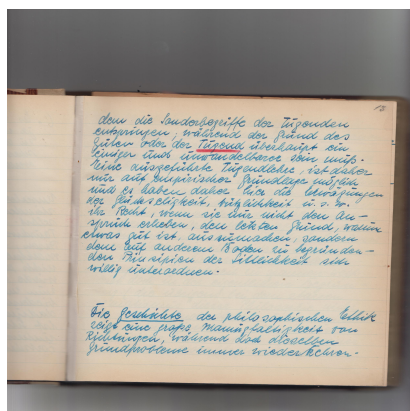 12
dem die Sonderbegriffe der Tugenden
entspringen; während der Grund des
Guten oder der Tugend überhaupt ein
einiger und unwandelbarer sein muß.
Eine ausgeführte Tugendlehre, ist daher
nur auf empirischer Grundlage möglich
und es haben daher hier die Erwägungen
der Glückseligkeit, Nützlichkeit u.s.w.
ihr Recht, wenn sie nur nicht den An-
spruch erheben, den letzten Grund, warum
etwas gut ist, auszumachen, sondern
dem auf anderem Boden zu begründen-
den Prinzipien der Sittlichkeit sich
willig unterordnen.
Die Geschichte der philosophischen Ethik
zeigt eine große Mannigfaltigkeit von
Richtungen, während doch dieselben
Grundprobleme immer wiederkehren.